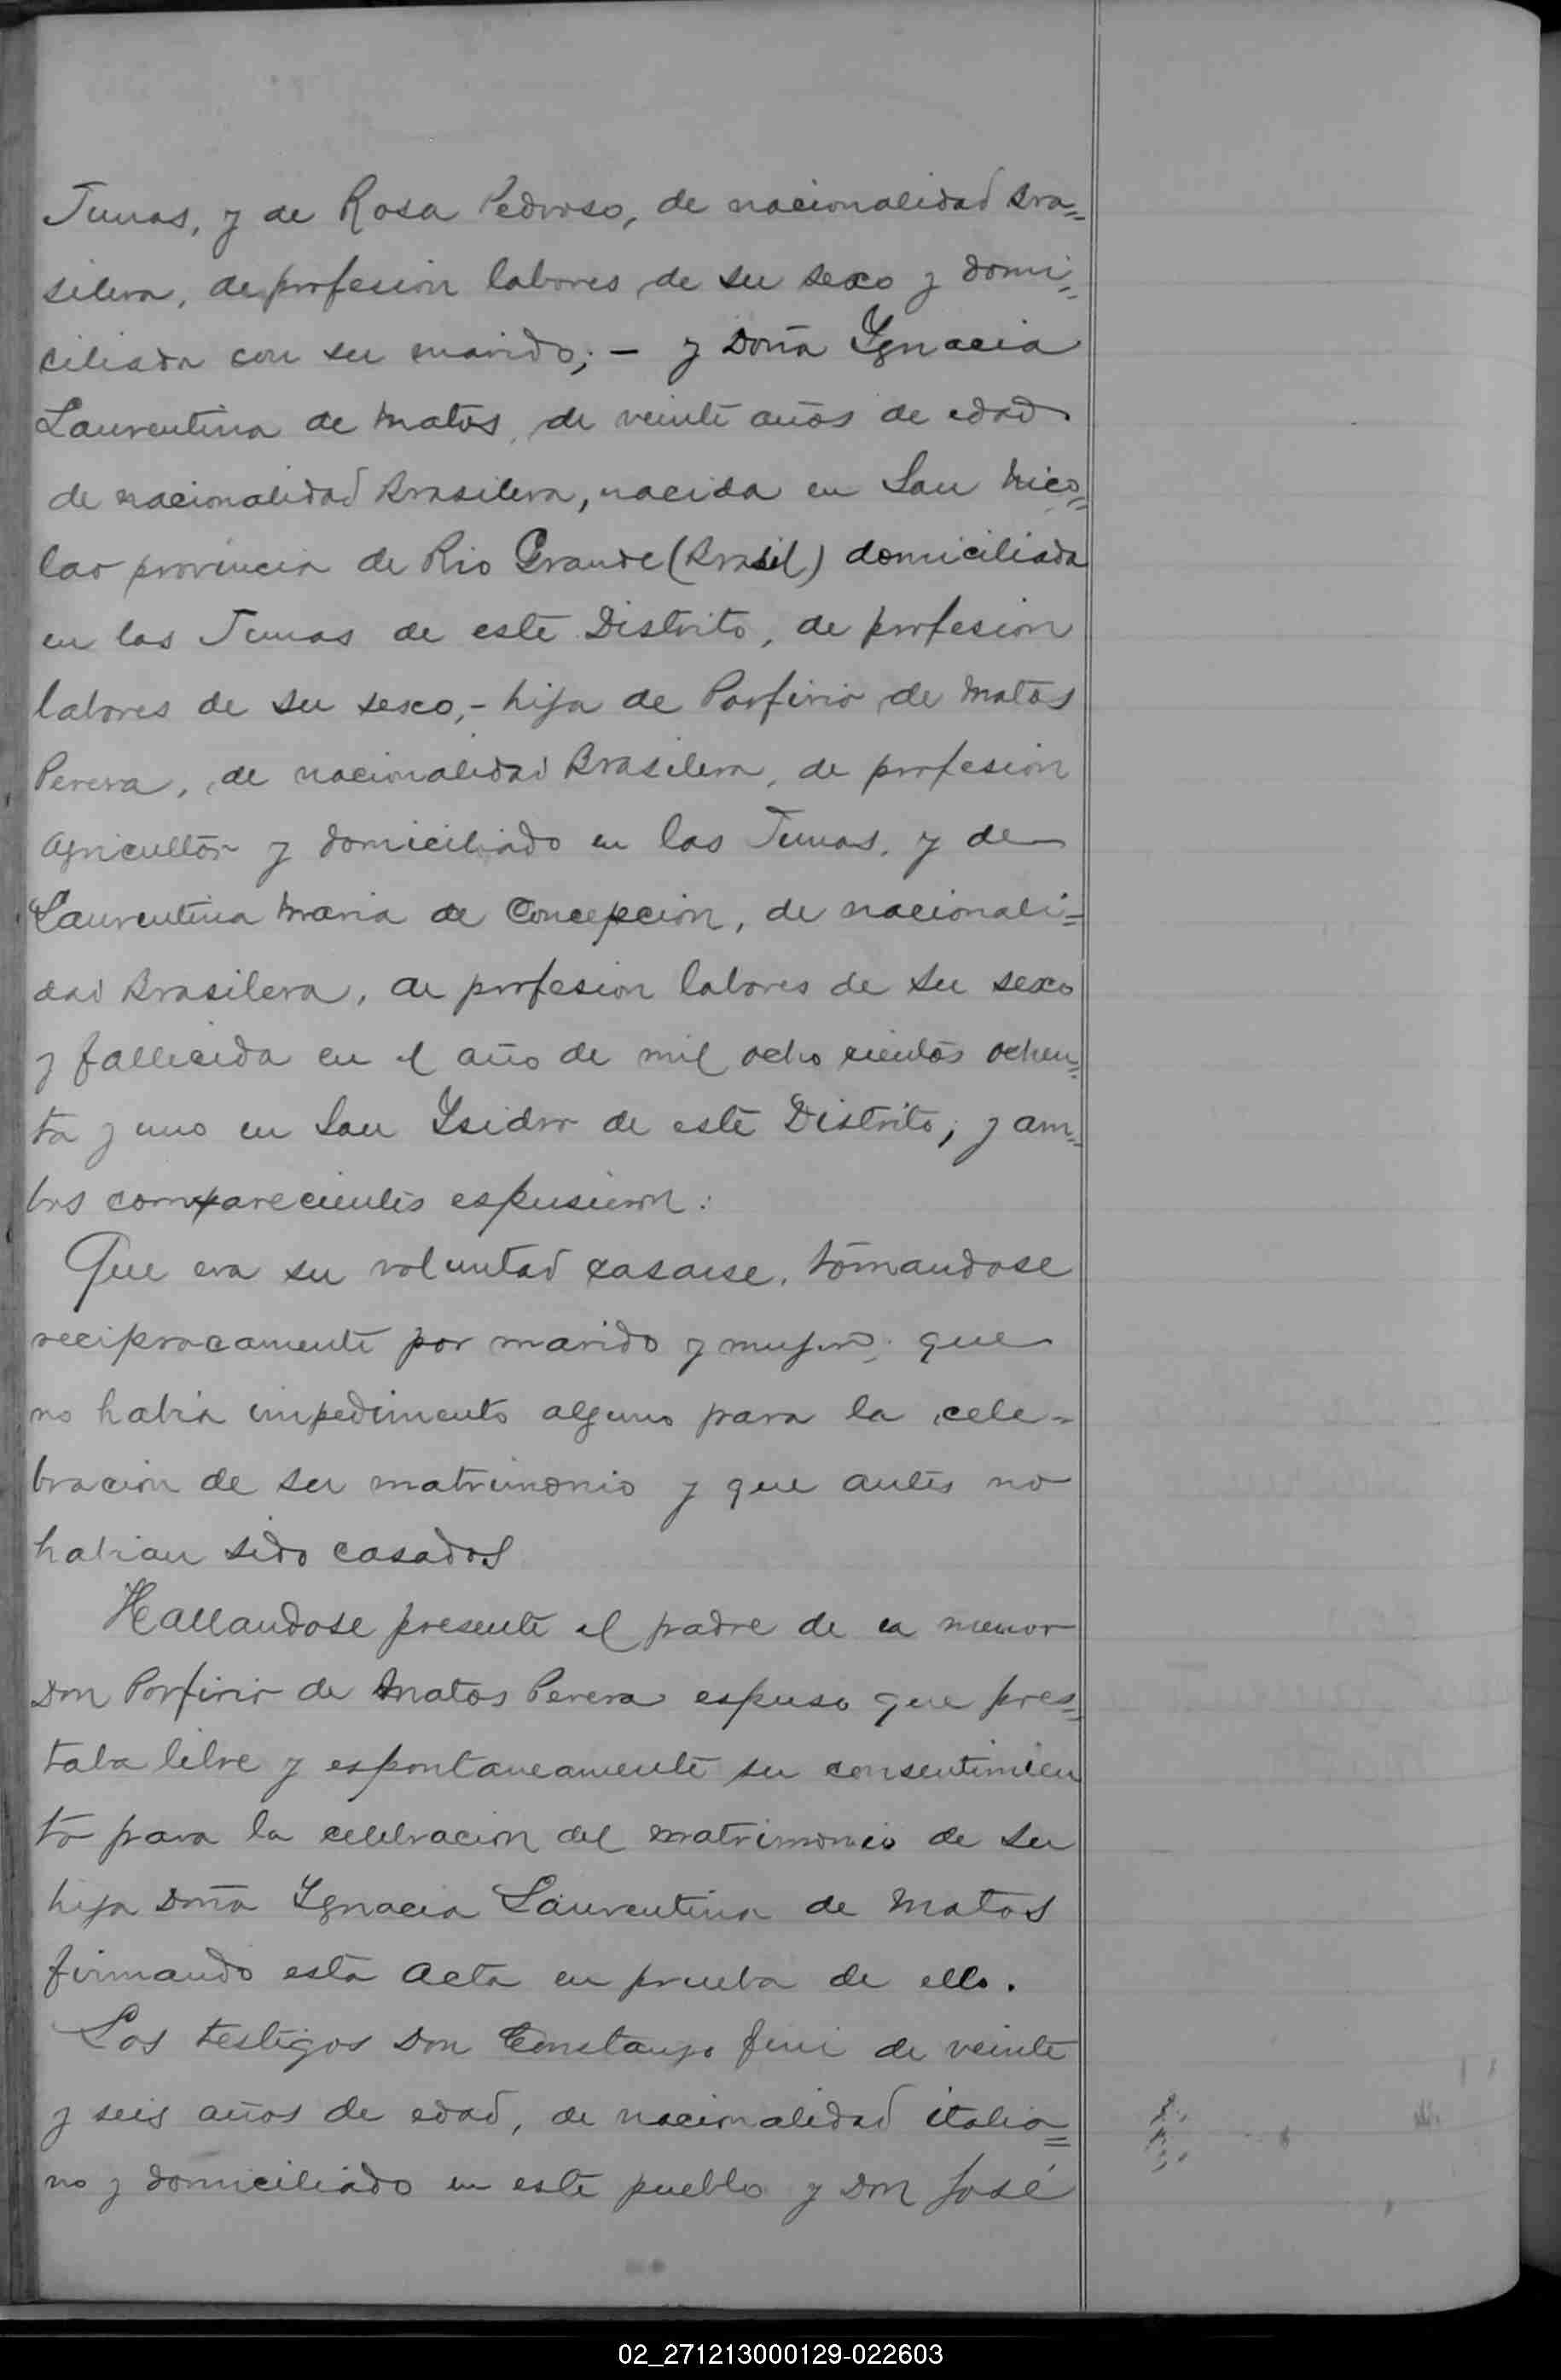 Tunas, y de Rosa Pedroso, de nacionalidad Bra=
silera, de profesion labores de su sexo y domi=
ciliada con su marido; – y Doña Ygnacia
Laurentina de Matos, de veinte años de edad
de nacionalidad Brasilera, nacida en San Nico=
las provincia de Rio Grande (Brasil) domiciliada
en las Tunas de este Distrito, de profesion
labores de su sexo, – hija de Porfirio de Matos
Perera, de nacionalidad Brasilera, de profesion
agricultor y domiciliado en las Tunas, y de
Laurentina Maria de Concepcion, de nacionali=
dad Brasilera, de profesion labores de su sexo
y fallecida en el año de mil ocho cientos ochen=
ta y uno en San Ysidro de este Distrito; y am=
bos comparecientes espusieron:
Que era su voluntad casarse, tomandose
reciprocamente por marido y mujer; que
no habia impedimento alguno para la cele=
bracion de su matrimonio y que antes no
habian sido casados
Hallandose presente el padre de la menor
Don Porfirio de Matos Perera espuso que pres=
taba libre y espontaneamente su consentimien
to para la celebracion del matrimonio de su
hija Doña Ygnacia Laurentina de Matos
firmando esta acta en prueba de ello.
Los testigos Don Constanzo de veinte
y seis años de edad, de nacionalidad italia=
no y domiciliado en este pueblo y Don José
02_271213000129-022603